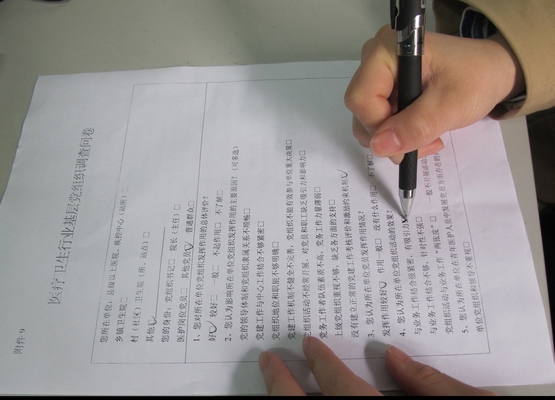 附件 9
医疗卫生行业基层党组织调查问卷
您所在单位：县级以上医院、疾控中心（站所）
乡镇卫生院□
村（社区）卫生院（所、站点）□
其他
您的身份：党组织书记□ 院长（主任）□
医护岗位党员□ 其他党员 普通群众□
1、您对所在单位党组织发挥作用的总体评价？
好 较好□ 一般□ 不起作用□ 不了解□
2、您认为影响所在单位党组织发挥作用的主要原因？（可多选）
党的领导体制和党组织隶属关系不顺畅□
党建工作与中心工作结合不够紧密□
党组织地位和职能不够明确□
党建工作机制不健全不完善，党组织不能有效参与单位重大决策□
党组织活动不经常开展，对党员和职工缺乏吸引力和影响力□
党务工作者队伍素质不高，党务工作力量薄弱□
上级党组织重视不够，缺乏各方面的支持□
没有建立正常的党建工作考核评价和激励约束机制
3、您认为所在单位党员发挥作用情况？
发挥作用较好 作用一般□ 没有什么作用□ 不了解
4、您认为所在单位党组织活动的效果？
与业务工作结合很紧密，有吸引力
与业务工作结合不够，针对性不强□
党组织活动与业务工作“两张皮”□ 一般不开展活动
5、您认为所在单位在青年医护人员中发展党员
单位党组织和领导不重视□